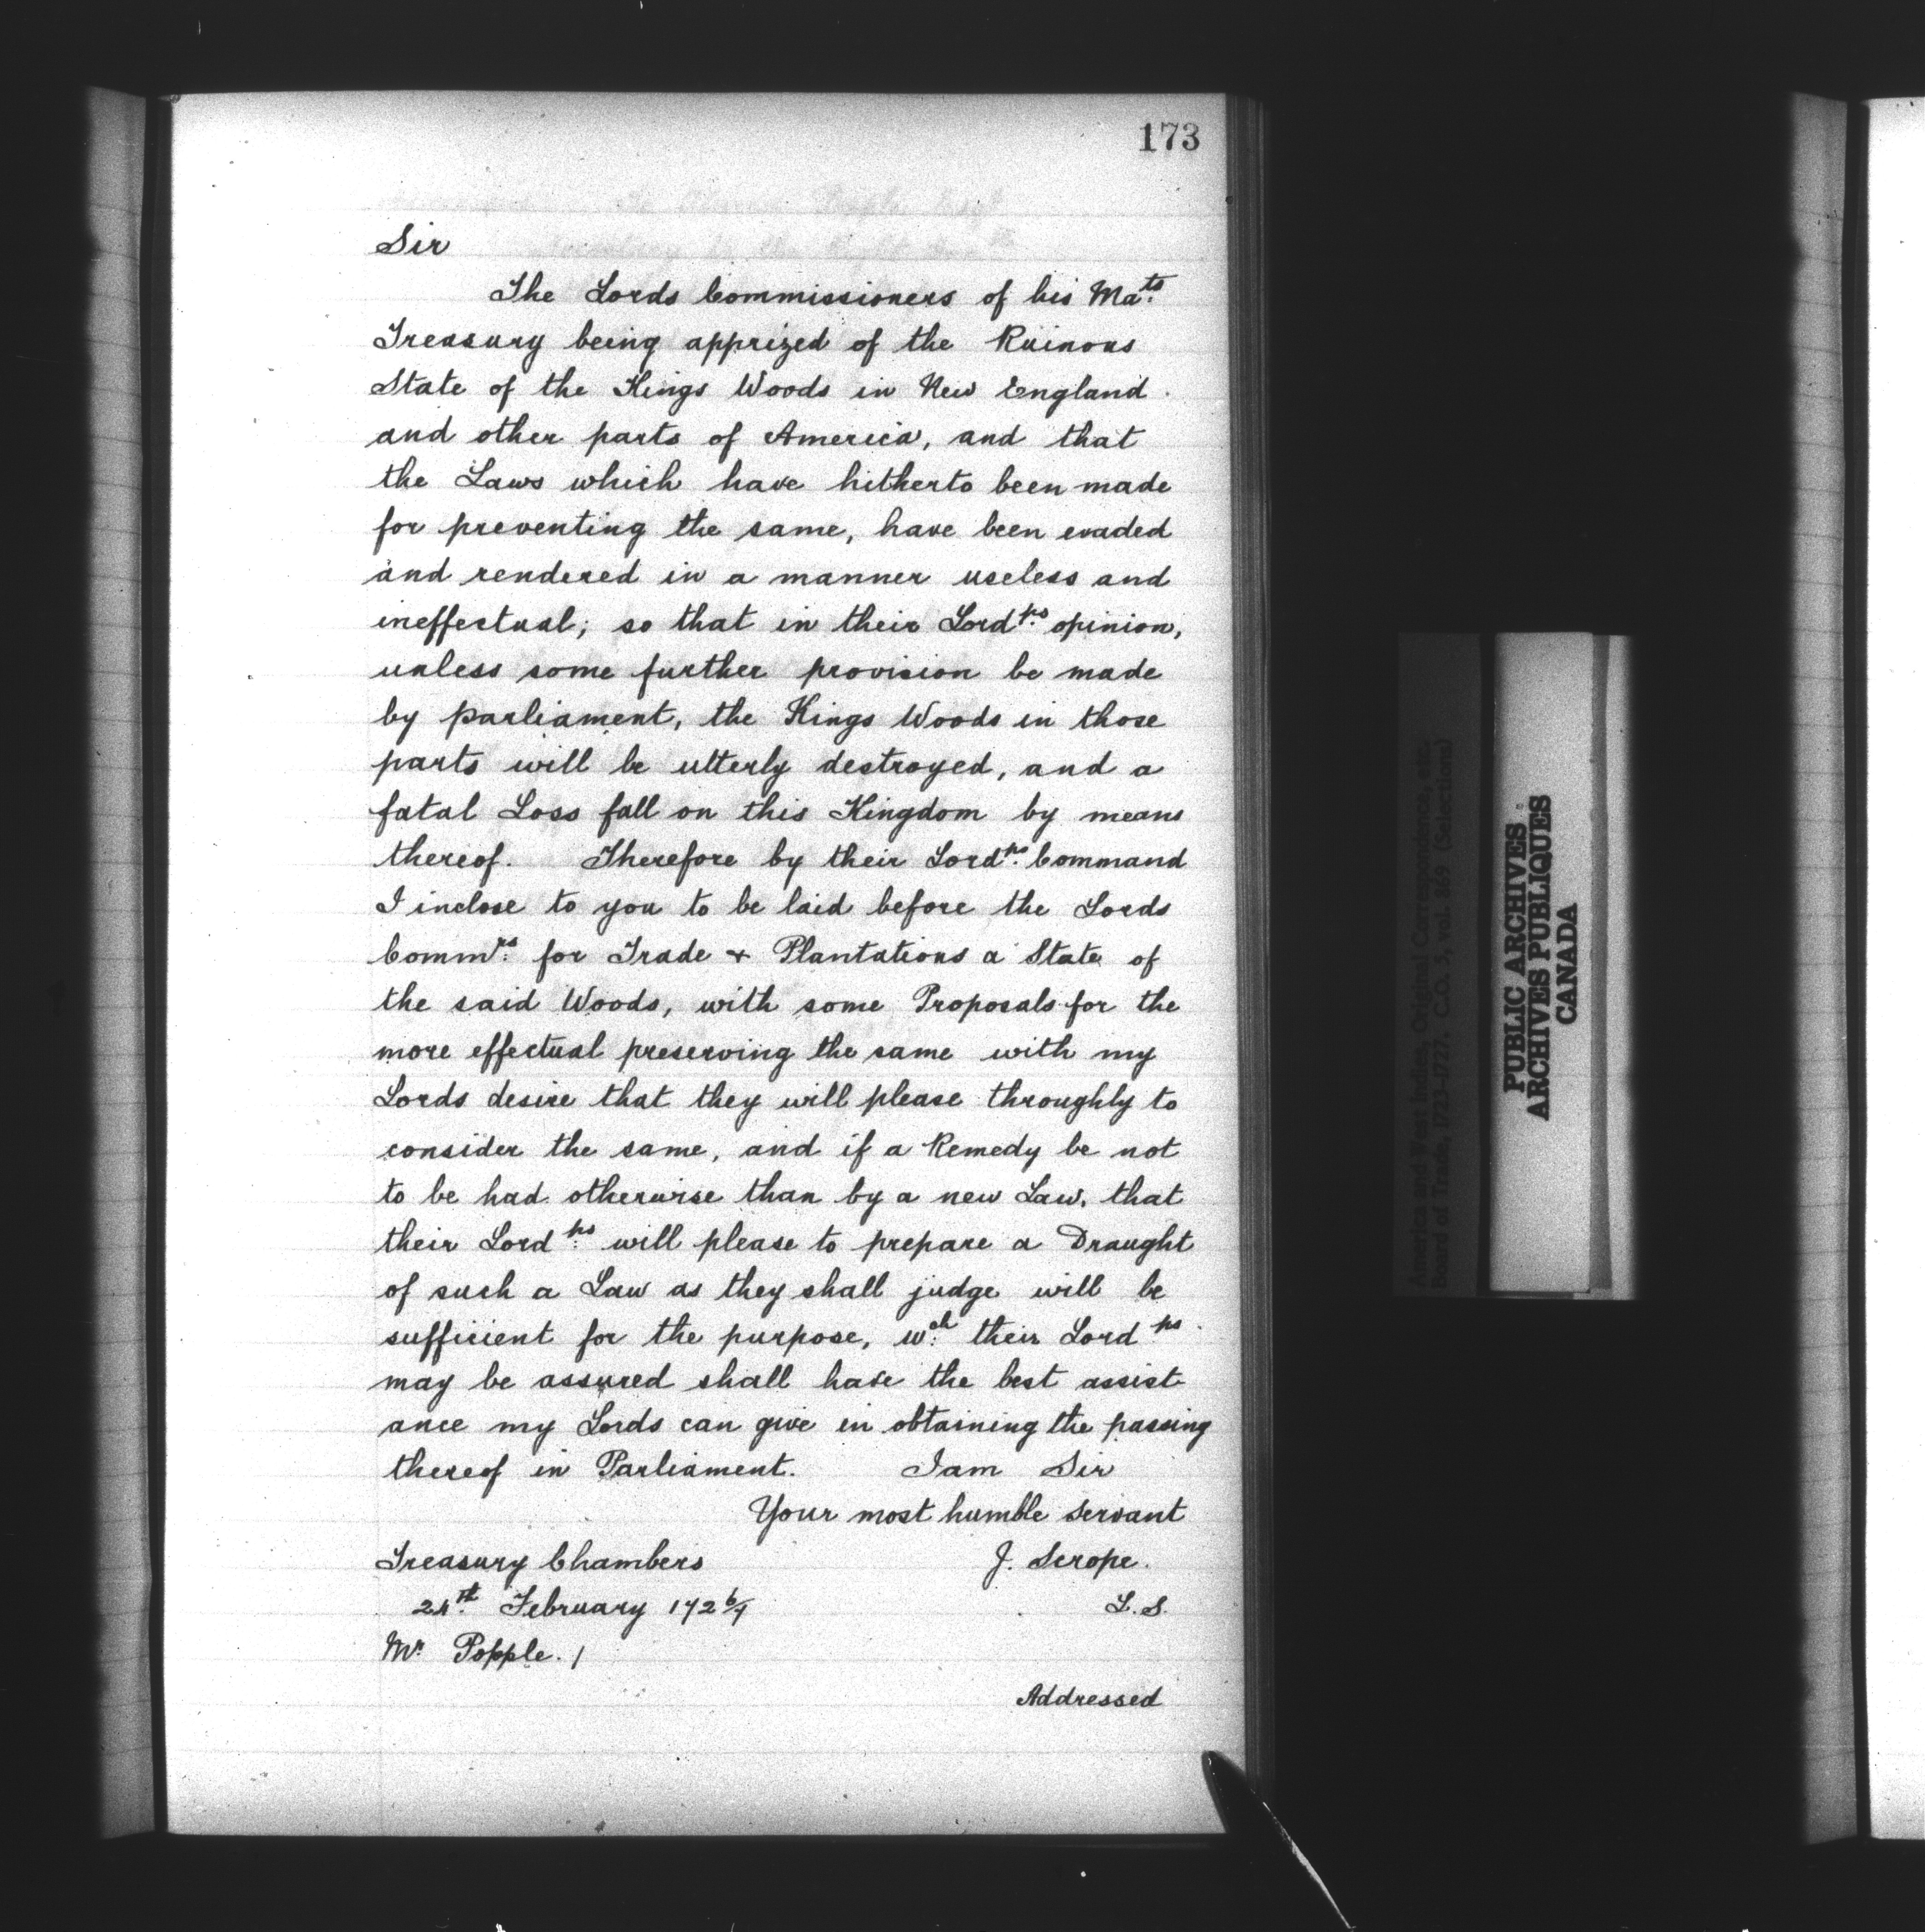 173
Sir
The Lords Commissioners of his Ma.ts
Treasury being apprized of the Ruinous
State of the Kings Woods in New England
and other parts of America, and that
the Laws which have hitherto been made
for preventing the same, have been evaded
and rendered in a manner useless and
ineffectual; so that in their Lord.ps opinion,
unless some further provision be made
by parliament, the Kings Woods in those
parts will be utterly destroyed, and a
fatal Loss fall on this Kingdom by means
thereof. Therefore by their Lord.ps Command
I inclose to you to be laid before the Lords
Comm.rs for Trade + Plantations a State of
the said Woods, with some Proposals for the
more effectual preserving the same with my
Lords desire that they will please throughly to
consider the same, and if a Remedy be not
to be had otherwise than by a new Law, that
their Lord.ps will please to prepare a Draught
of such a Law as they shall judge will be
sufficient for the purpose, w.ch their Lord ps
may be assured shall have the best assist-
ance my Lords can give in obtaining the passing
thereof in Parliament. I am Sir
Your most humble Servant
Treasury Chambers J. Scrope.
24.th February 172 6/7 L.S.
Mr. Popple. /
Addressed
America and West Indies, Original Correspondence, etc.
Board of Trade, 1723-1727. C.O. 5, vol. 869 (Selections)
PUBLIC ARCHIVES
ARCHIVES PUBLIQUES
CANADA